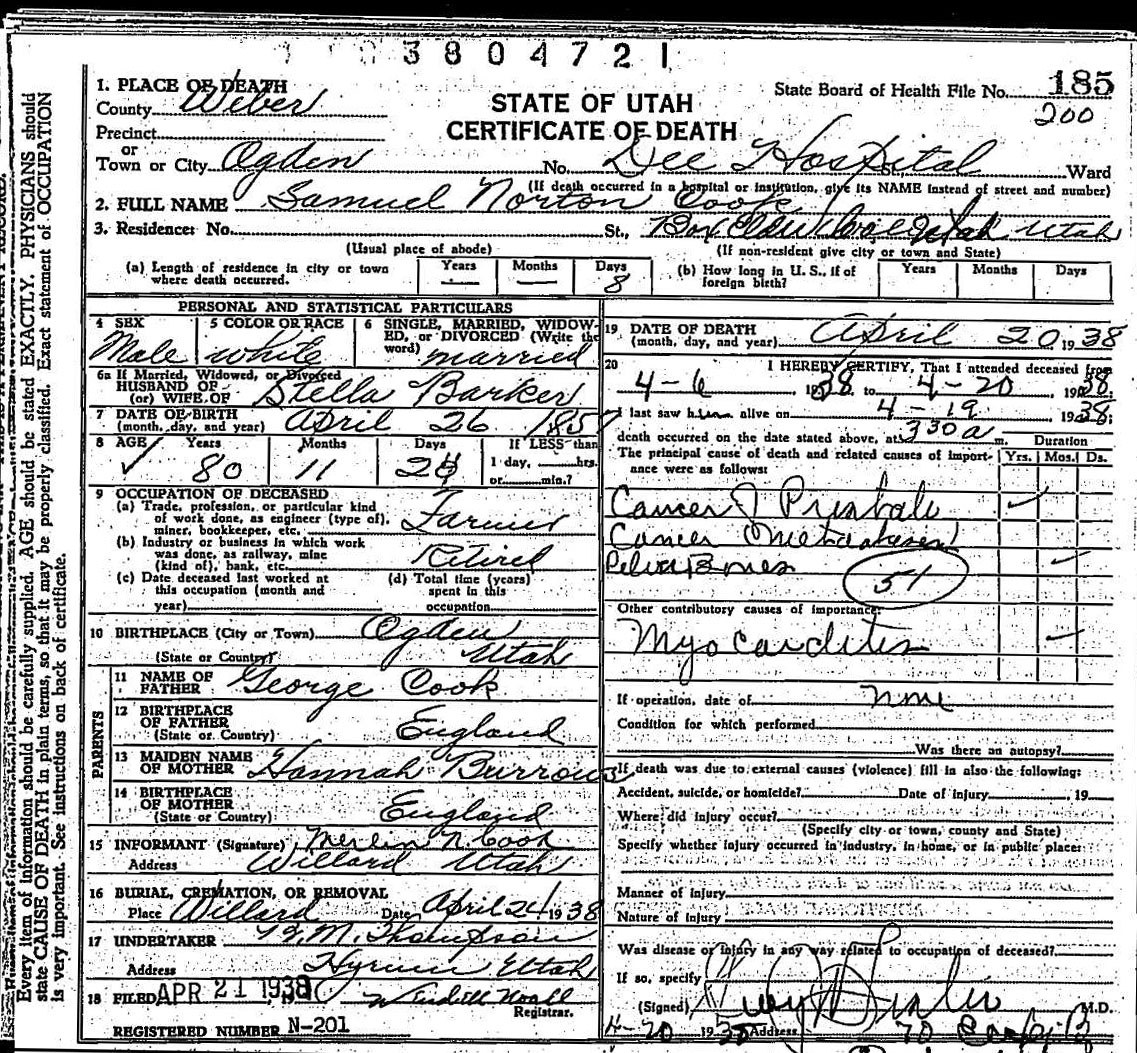 3804721
1. PLACE OF DEATH
County Weber
STATE OF UTAH
CERTIFICATE OF DEATH
State Board of Health File No. 185
200
Precinct
or
Town or City Ogden No. Dee Hospital St., Ward
(If death occurred in a hospital or institution, give its NAME instead of street and number)
2. FULL NAME Samuel Norton Cook
3. Residence: No. St., Box Elder Utah
(Usual place of abode) (If non-resident give city or town and State)
(a) Length of residence in city or town where death occurred. Years — Months — Days 8
(b) How long in U. S., if of foreign birth? Years Months Days
PERSONAL AND STATISTICAL PARTICULARS
4 SEX Male
5 COLOR OR RACE white
6 SINGLE, MARRIED, WIDOWED, or DIVORCED (Write the word) married
6a If Married, Widowed, or Divorced
HUSBAND OF
(or) WIFE OF Stella Barker
7 DATE OF BIRTH
(month, day, and year) April 26 1857
8 AGE Years 80 Months 11 Days
If LESS than
1 day, hrs.
or min.?
9 OCCUPATION OF DECEASED
(a) Trade, profession, or particular kind
of work done, as engineer (type of),
miner, bookkeeper, etc. Farmer
(b) Industry or business in which work
was done, as railway, mine
(kind of), bank, etc. Retired
(c) Date deceased last worked at
this occupation (month and
year)
(d) Total time (years)
spent in this
occupation
10 BIRTHPLACE (City or Town) Ogden
(State or Country) Utah
PARENTS
11 NAME OF
FATHER George Cook
12 BIRTHPLACE
OF FATHER
(State or Country) England
13 MAIDEN NAME
OF MOTHER Hannah Burrows
14 BIRTHPLACE
OF MOTHER
(State or Country) England
15 INFORMANT (Signature) Merlin N Cook
Address Willard Utah
16 BURIAL, CREMATION, OR REMOVAL
Place Willard Date April 24 1938
17 UNDERTAKER M. Thompson
Address Hyrum Utah
18 FILED APR 21 1938 Noall
Registrar.
REGISTERED NUMBER N-201
19 DATE OF DEATH
(month, day, and year) April 20, 1938
20 I HEREBY CERTIFY, That I attended deceased from
4-6, 1938 to 4-20 1938;
I last saw him alive on 4-19 1938;
death occurred on the date stated above, at 330 a m.
The principal cause of death and related causes of importance were as follows:
Duration
Yrs. Mos. Ds.
Cancer of Prostate
Cancer (metastasis)
Pelvic Bones
51
Other contributory causes of importance:
Myocarditis
If operation, date of none
Condition for which performed
Was there an autopsy?
If death was due to external causes (violence) fill in also the following:
Accident, suicide, or homicide? Date of injury , 19
Where did injury occur?
(Specify city or town, county and State)
Specify whether injury occurred in industry, in home, or in public place:
Manner of injury
Nature of injury
Was disease or injury in any way related to occupation of deceased?
If so, specify
(Signed) M.D.
4-20 1938 Address
Every item of information should be carefully supplied. AGE should be stated EXACTLY. PHYSICIANS should
state CAUSE OF DEATH in plain terms, so that it may be properly classified. Exact statement of OCCUPATION
is very important. See instructions on back of certificate.